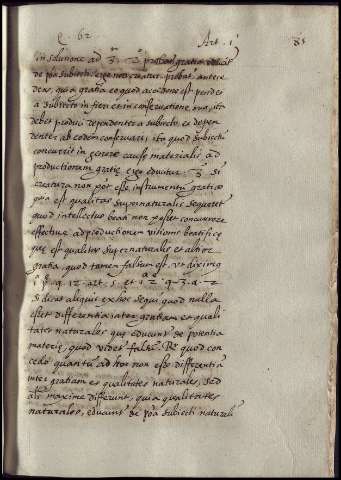 q. 62 Art. 1 85
in solutione ad 3m. 2o probat gratia educit
de poa subiecti, ergo non creatur. probat antece
dens, quia gratia eo quod accidens est pendet
a subiecto in fieri et in conseruatione sua, ita
debet produci dependenter a subiecto et depen
denter ab eodem conseruari, ita quod subiectu
concurrit in genere causae materialis ad
productionem gratiae ergo educitur. 3o si
creatura non pot esse instrumentu gratiae
quia est qualitas supernaturalis sequeret
quod intellectus beati non posset concurrere
effectiue ad productionem uisionis beatificae
quae est qualitas supernaturalis et altior
gratia, quod tamen falsum est, ut diximus
1 p. q. 12 art. 5 et 1a 2ae q. 3 a. 2
si dicat aliquis ex hoc sequi quod nulla
esset differentia inter gratiam et quali
tates naturales quae educunt de potentia
materiae, quod uidet falsu. Rr quod con
cedo quantu ad hoc non esse differentia
inter gratiam et qualitates naturales, sed
als maxime differunt, quia qualitates
naturales, educunt de poa subiecti naturali